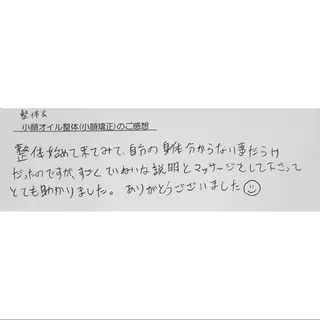 整体&
小顔オイル整体(小顔矯正)のご感想
整体始めて来てみて、自分の身体分からない事だらけ
だったのですが、すごくていねいな説明とマッサージをして下さって
とても助かりました。ありがとうございました